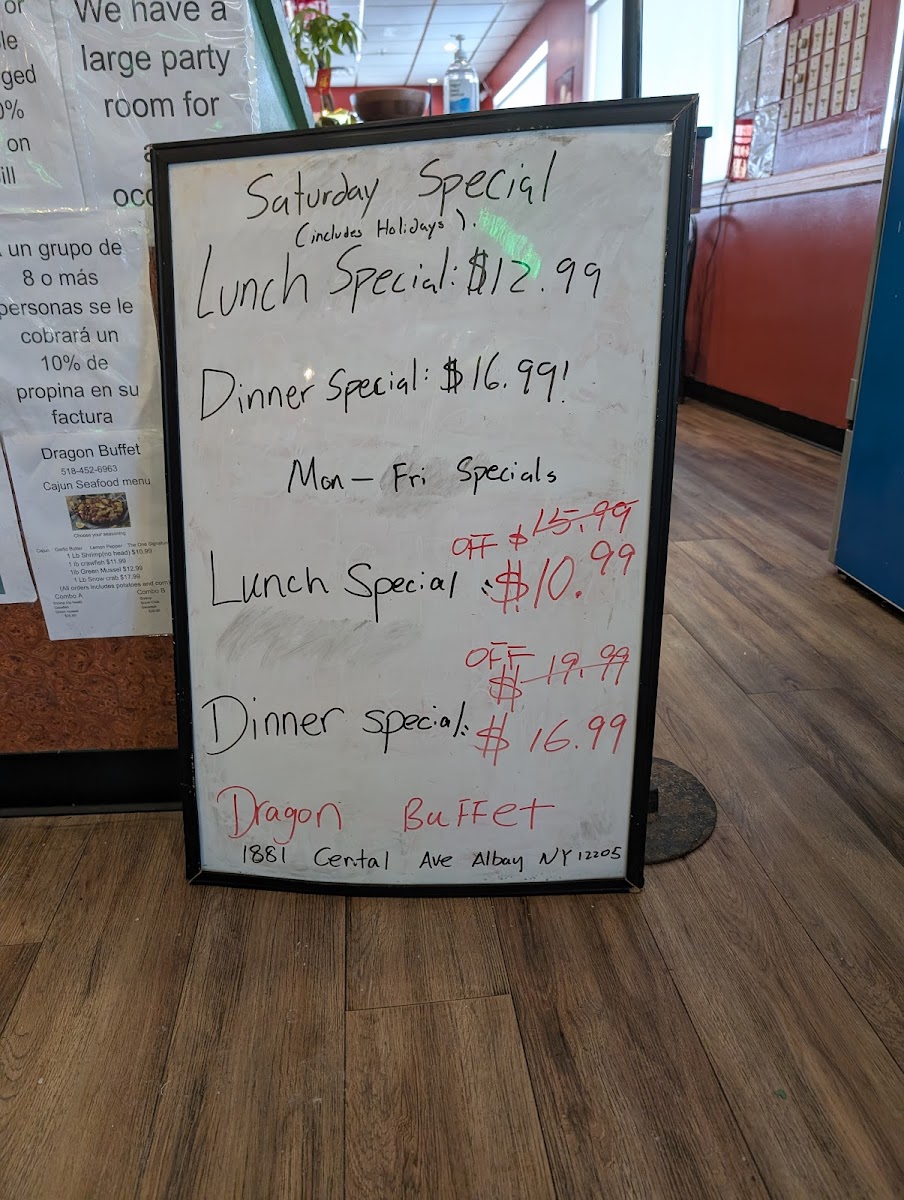 or
ged
0%
on
ill
We have a
large party
room for
occ
un grupo de
8 o más
personas se le
cobrará un
10% de
propina en su
factura
Dragon Buffet
518-452-6963
Cajun Seafood menu
Choose your seasoning
Cajun Garlic Butter Lemon Pepper The One Signature
1 Lb Shrimp(no head) $10.99
1 lb crawfish $11.99
1lb Green Mussel $12.99
1 Lb Snow crab $17.99
(All orders includes potatoes and corn
Combo A Combo B
Saturday Special
(includes Holidays).
Lunch Special: $12.99
Dinner Special: $16.99!
Mon - Fri Specials
OFF $15.99
Lunch Special: $10.99
OFF $19.99
Dinner special: $16.99
Dragon Buffet
1881 Cental Ave Albay NY 12205